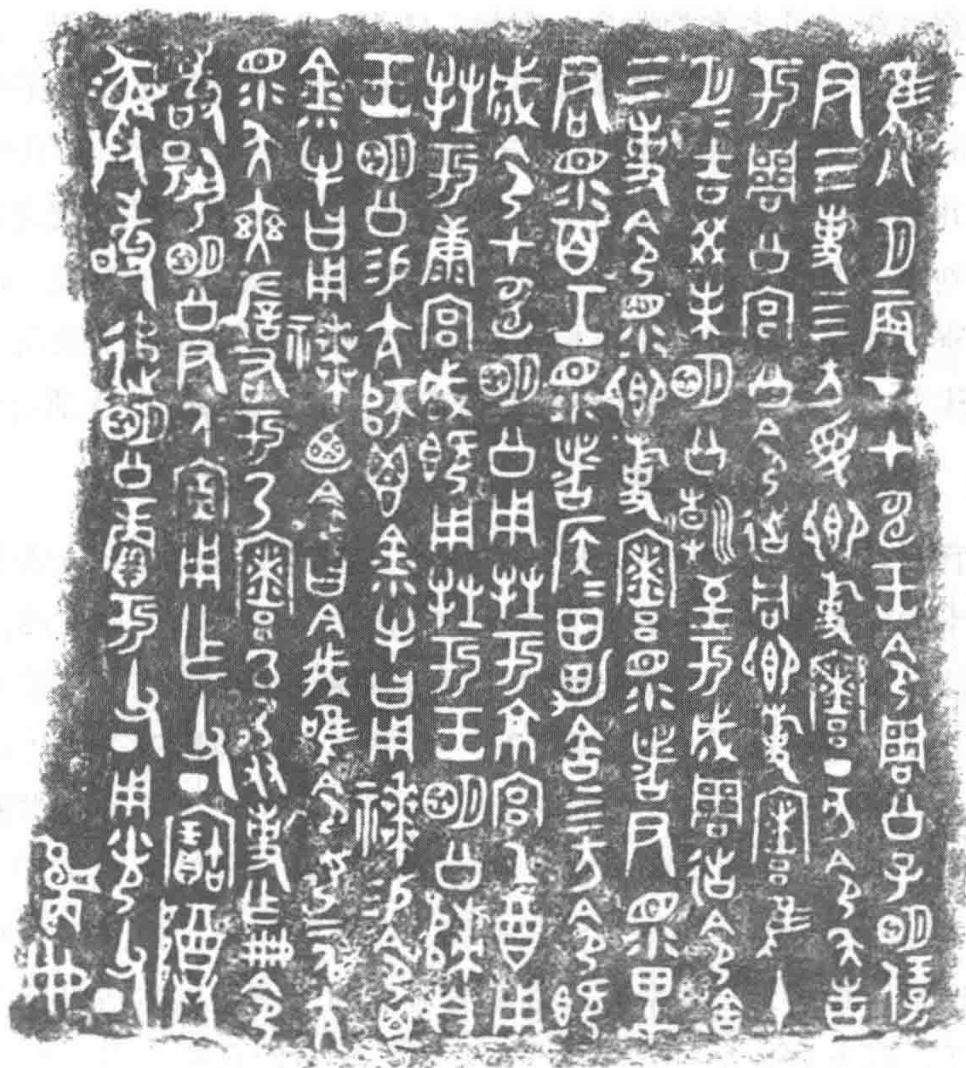 隹八月辰才甲申王令周公子明保
尹三事四方受卿事寮丁亥令夨告
于周公宮公令𢓊同卿事寮隹十
月月吉癸未明公朝至于成周𢓊令舍
三事令眔卿事寮眔者尹眔里
君眔百工眔者侯侯田男舍四方令既
咸令甲申明公用牲于京宮乙酉用
牲于康宮咸既用牲于王明公歸自
王明公易亢師鬯金小牛曰用𥛱易令鬯
金小牛曰用𥛱廼令曰今我唯令女二人亢
眔夨奭左右于乃寮以乃友事乍冊令
敢揚明公尹氒宣用乍父丁寶尊
彝敢追明公賞于父丁用光父丁
冊